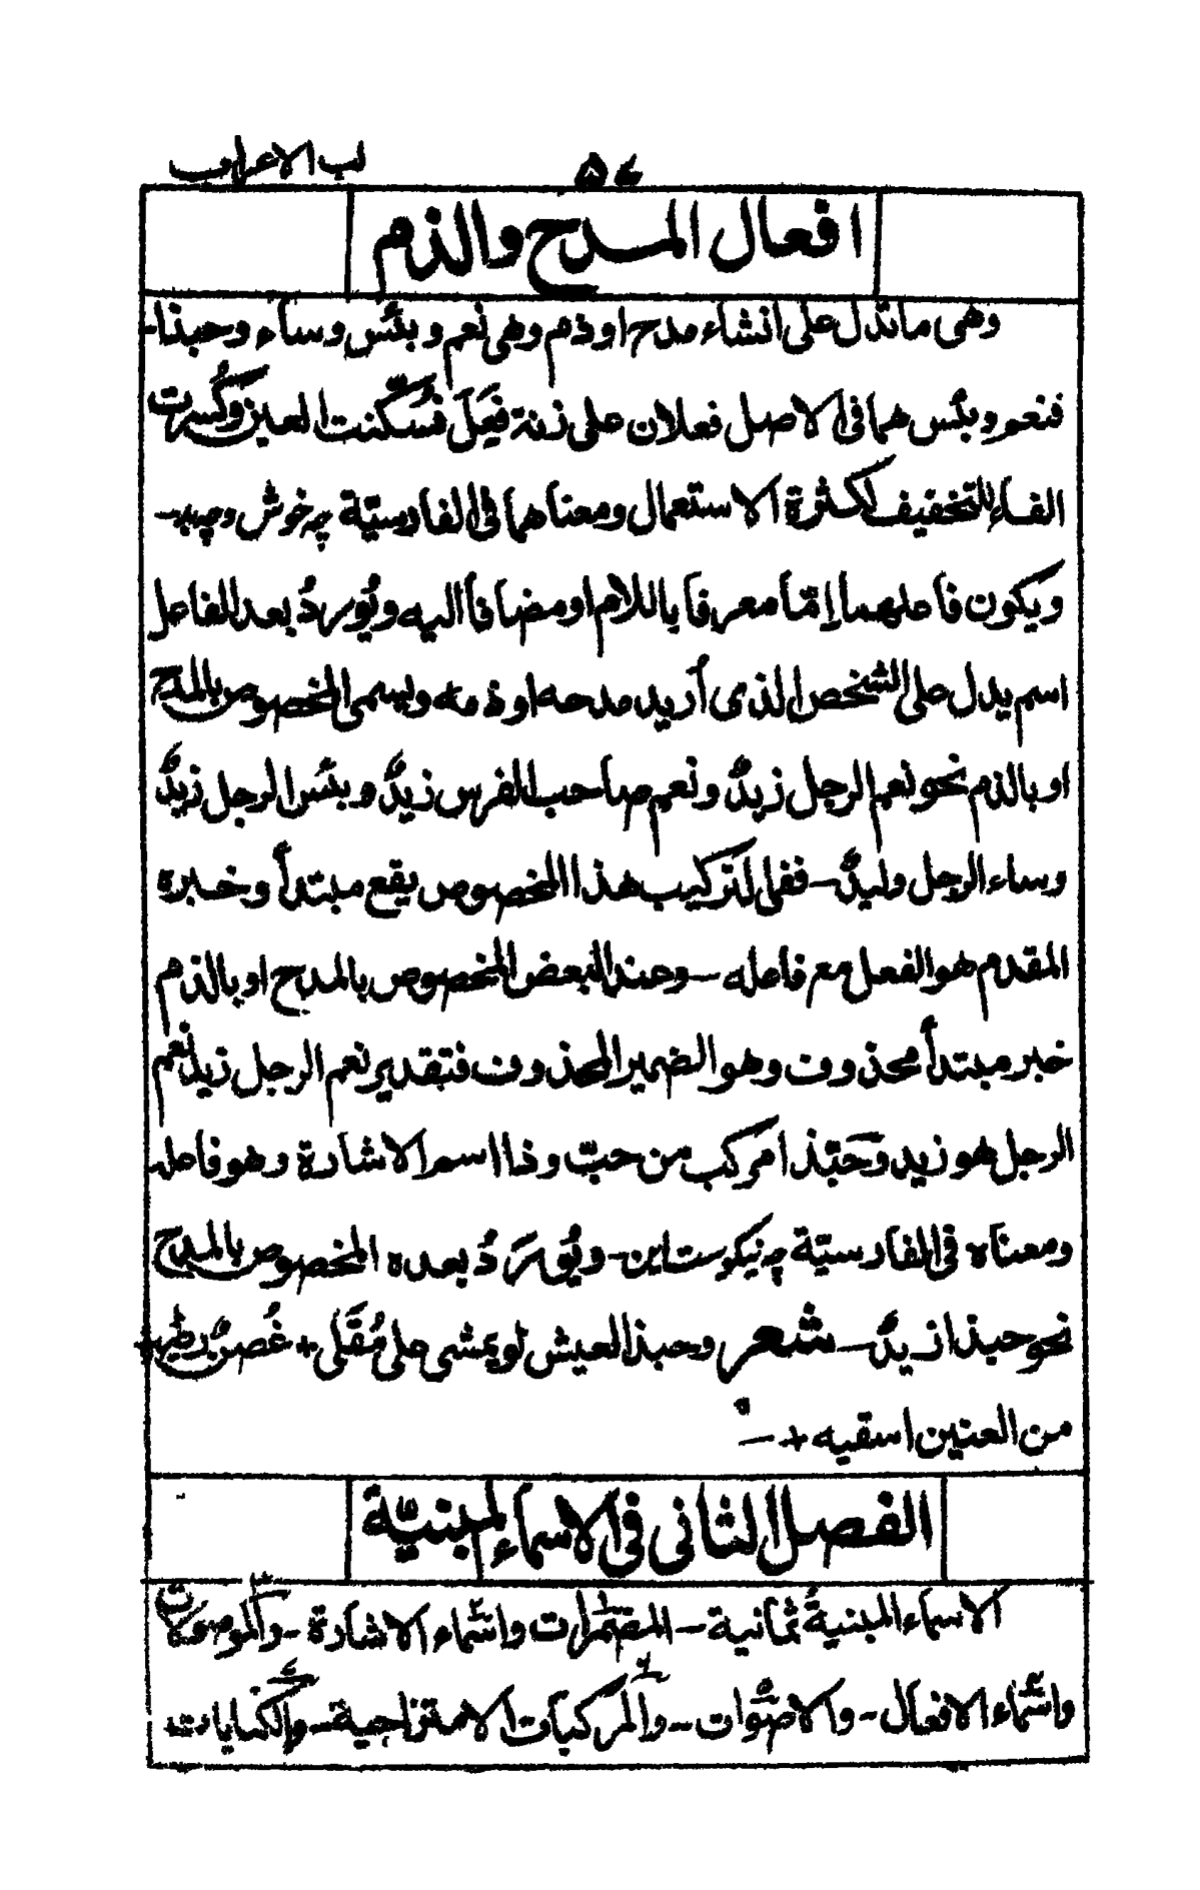 لب الاعراب
٥٧
افعال المدح والذم
وهى ماتدل على انشاء مدح اوذم وهى نعم وبئس وساء وحبذا
فنعم وبئس هما فى الاصل فعلان على زنة فَعِلَ فسُكّنت العين وكُسرت
الفاء للتخفيف لكثرة الاستعمال ومعناهما فى الفارسيّة چه خوش وچه بد-
ويكون فاعلهما إمّا معرفا باللام اومضافاً اليه ويُورَدُ بعد الفاعل
اسم يدل على الشخص الذى أريد مدحه اوذمه ويسمى المخصوص بالمدح
اوبالذم نحو نعم الرجل زيدٌ ونعم صاحب الفرس زيدٌ وبئس الرجل زيدٌ
وساء الرجل وليدٌ- ففى التركيب هذا المخصوص يقع مبتدأ وخبره
المقدم هو الفعل مع فاعله - وعند البعض المخصوص بالمدح اوبالذم
خبر مبتدأ محذوف وهو الضمير المحذوف فتقدير نعم الرجل زيد نعم
الرجل هو زيد وحَبّذا مركب من حبّ وذا اسم الاشارة وهو فاعله
ومعناه فى الفارسيّة چه نيكوست اين- ويُورَدُ بعده المخصوص بالمدح
نحو حبذا زيدٌ- شعر وحبذا العيش لو يمشى على مُقَلى + غُصنٌ رطيب
من العنين اسقيه + -
الفصل الثانى فى الاسماء المبنيّة
الاسماء المبنيةُ ثمانية - المضمرات واسماء الاشارة - والموصولات
واسماء الافعال - والاصوات - والمركبات الامتزاجية - والكنايات